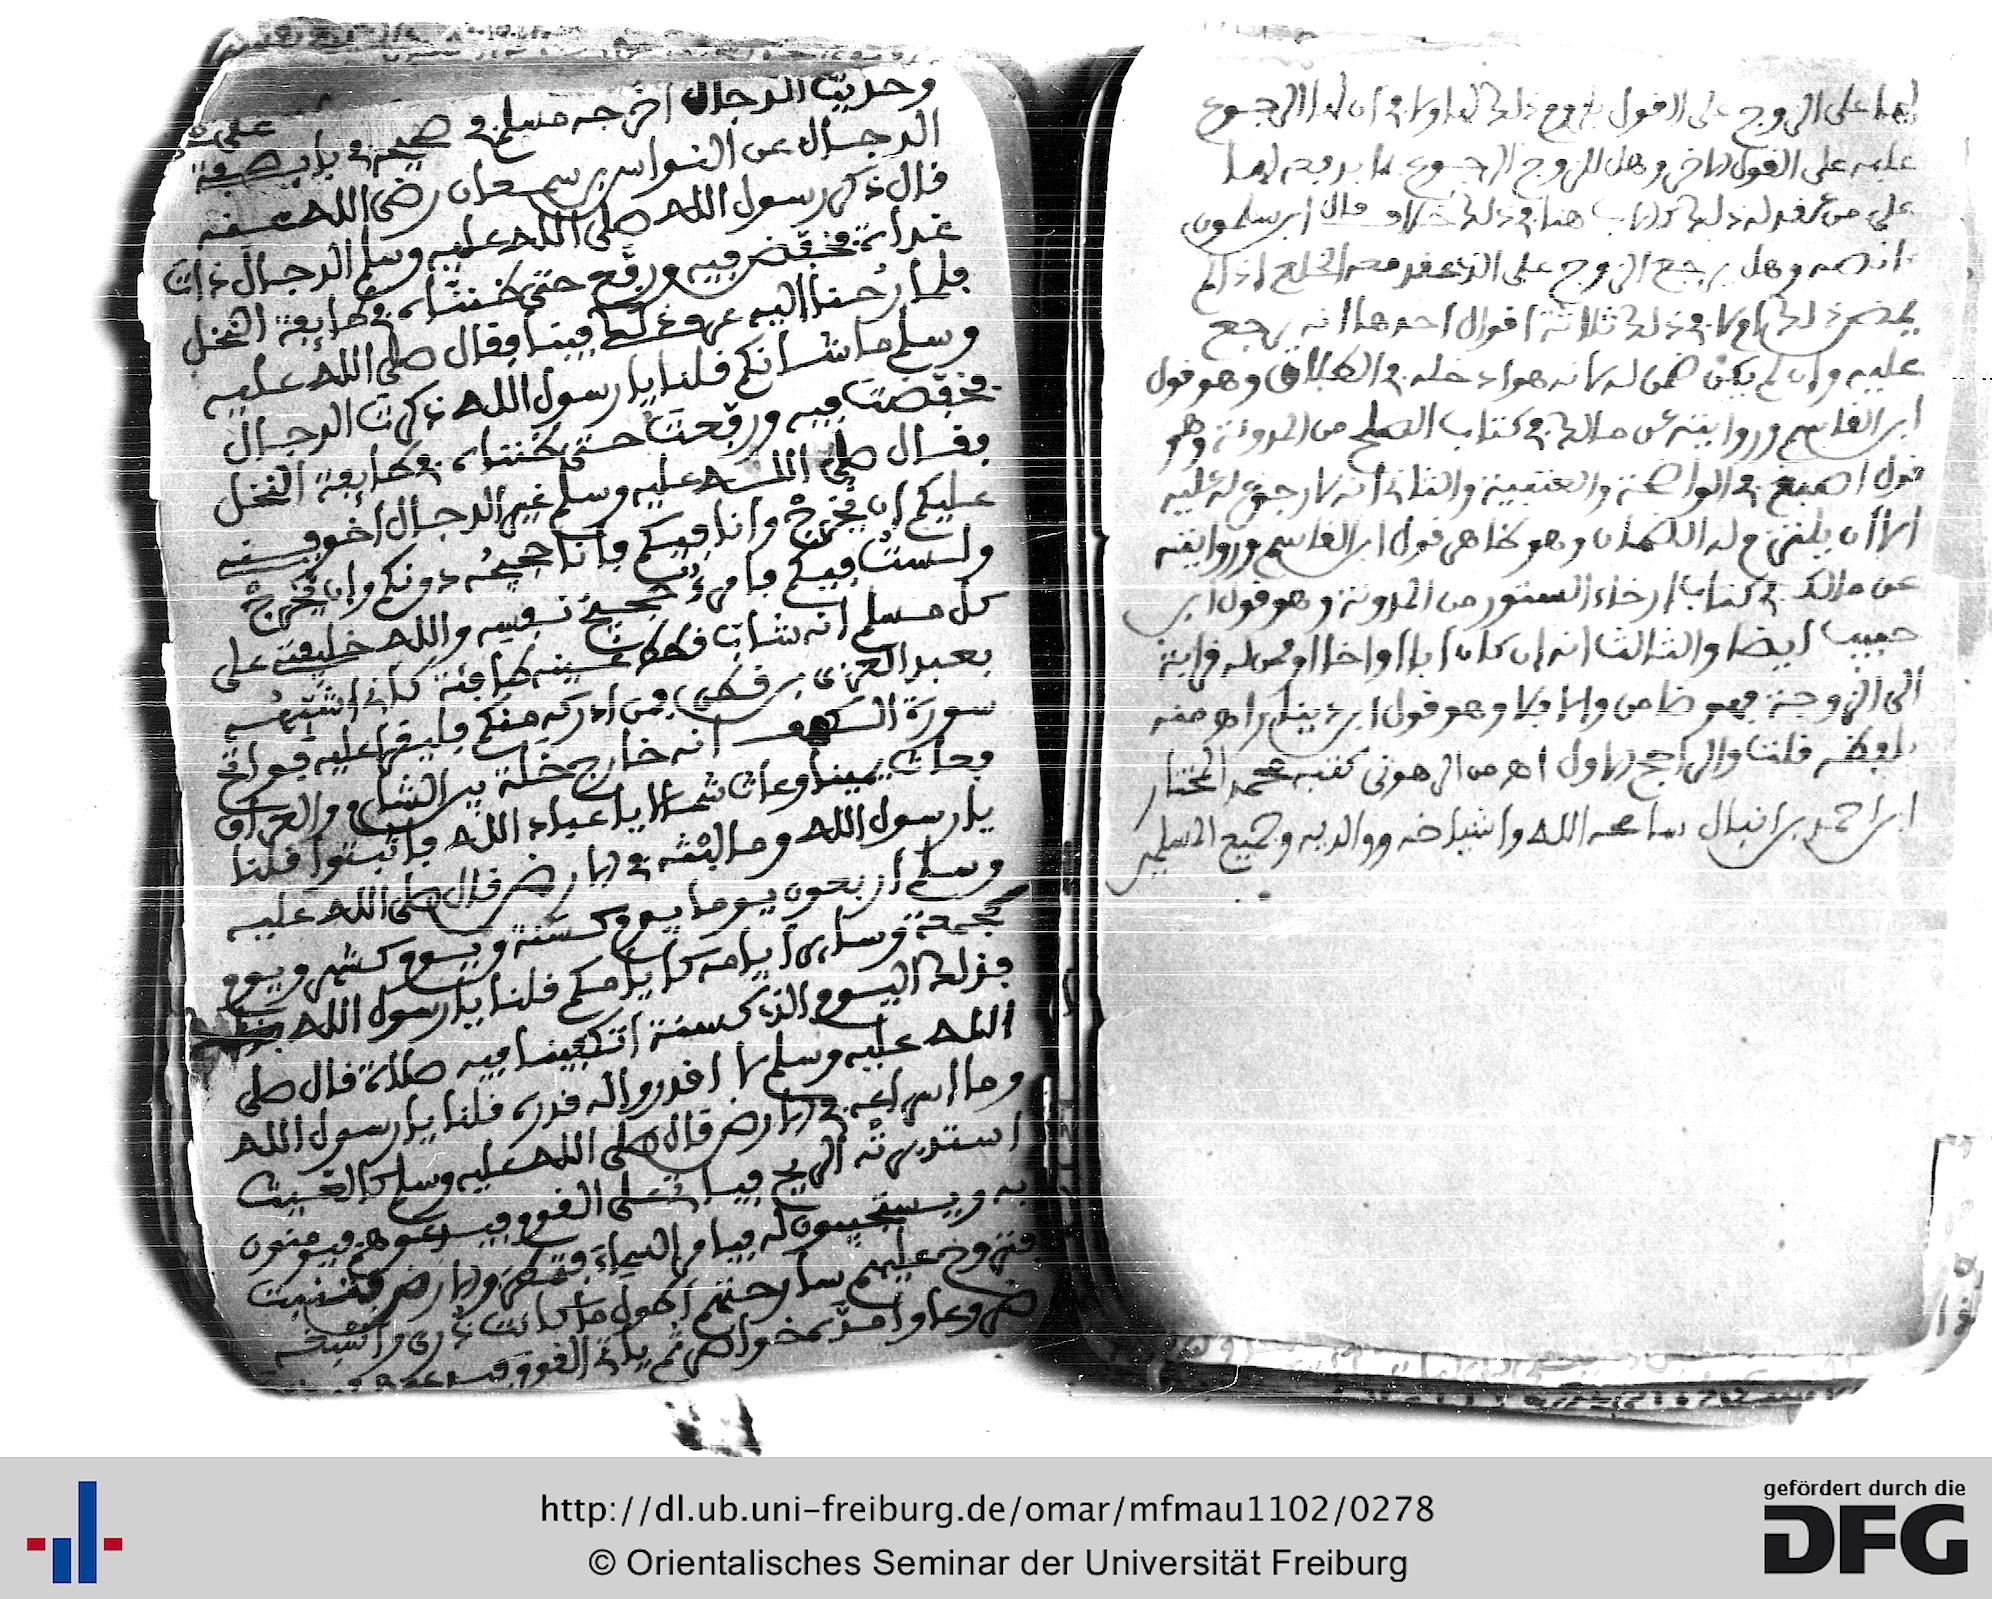 لهما على الزوج على القول بلزوم ذلك لهما ولا في ان لها الرجوع
عليه على القول الاخر وهل للزوج الرجوع بما يدفعه لهما
على من عقد له ذلك كالاب هنا في ذلك خلاف قال ابن سلمون
ما نصه وهل يرجع الزوج على الذي عقد معه الخلع اذا لم
يمض ذلك ام لا في ذلك ثلاثة اقوال احدها انه يرجع
عليه وان لم يكن ضمن له لانه هو ادخله في الطلاق وهو قول
ابن القاسم وروايته عن مالك في كتاب الصلح من المدونة وهو
قول اصبغ في الواضحة والعتبية والثاني انه لا رجوع له عليه
الا ان يلتزم له الضمان وهو ظاهر قول ابن القاسم وروايته
عن مالك في كتاب ارخاء الستور من المدونة وهو قول ابن
حبيب ايضا والثالث انه ان كان ابا او اخا او ممن له قرابة
الى الزوجة فهو ضامن والا فلا وهو قول ابن دينار اهـ منه
بلفظه قلت والراجح الاول اهـ من الرهوني كتبه محمد المختار
ابن احمد بن انبال سامحه الله واشياخه ووالديه وجميع المسلمين
وحديث الدجال اخرجه مسلم في صحيحه في باب صفة
الدجال عن النواس بن سمعان رضي الله عنه
قال ذكر رسول الله صلى الله عليه وسلم الدجال ذات
غداة فخفض فيه ورفع حتى ظنناه في طايفة النخل
فلما رحنا اليه عرف ذلك فينا فقال صلى الله عليه
وسلم ما شانكم قلنا يا رسول الله ذكرت الدجال
فخفضت فيه ورفعت حتى ظنناه في طايفة النخل
فقال صلى الله عليه وسلم غير الدجال اخوفني
عليكم ان يخرج وانا فيكم فانا حجيجه دونكم وان يخرج
ولست فيكم فامرؤ حجيج نفسه والله خليفتي على
كل مسلم انه شاب قطط عينه طافئة كاني اشبهه
بعبد العزى بن قطن فمن ادركه منكم فليقرا عليه فواتح
سورة الكهف انه خارج خلة بين الشام والعراق
فعاث يمينا وعاث شمالا يا عباد الله فاثبتوا قلنا
يا رسول الله وما لبثه في الارض قال صلى الله عليه
وسلم اربعون يوما يوم كسنة ويوم كشهر ويوم
كجمعة وساير ايامه كايامكم قلنا يا رسول الله
فذلك اليوم الذي كسنة اتكفينا فيه صلاة قال صلى
الله عليه وسلم لا اقدروا له قدره قلنا يا رسول الله
وما اسراعه في الارض قال صلى الله عليه وسلم كالغيث
استدبرته الريح فياتي على القوم فيدعوهم فيومنون
به ويستجيبون له فيامر السماء فتمطر والارض فتنبت
فتروح عليهم سارحتهم اطول ما كانت ذرى واشبعه
ضروعا وامده خواصر ثم ياتي القوم فيدعوهم
http://dl.ub.uni-freiburg.de/omar/mfmau1102/0278
© Orientalisches Seminar der Universität Freiburg
gefördert durch die
DFG